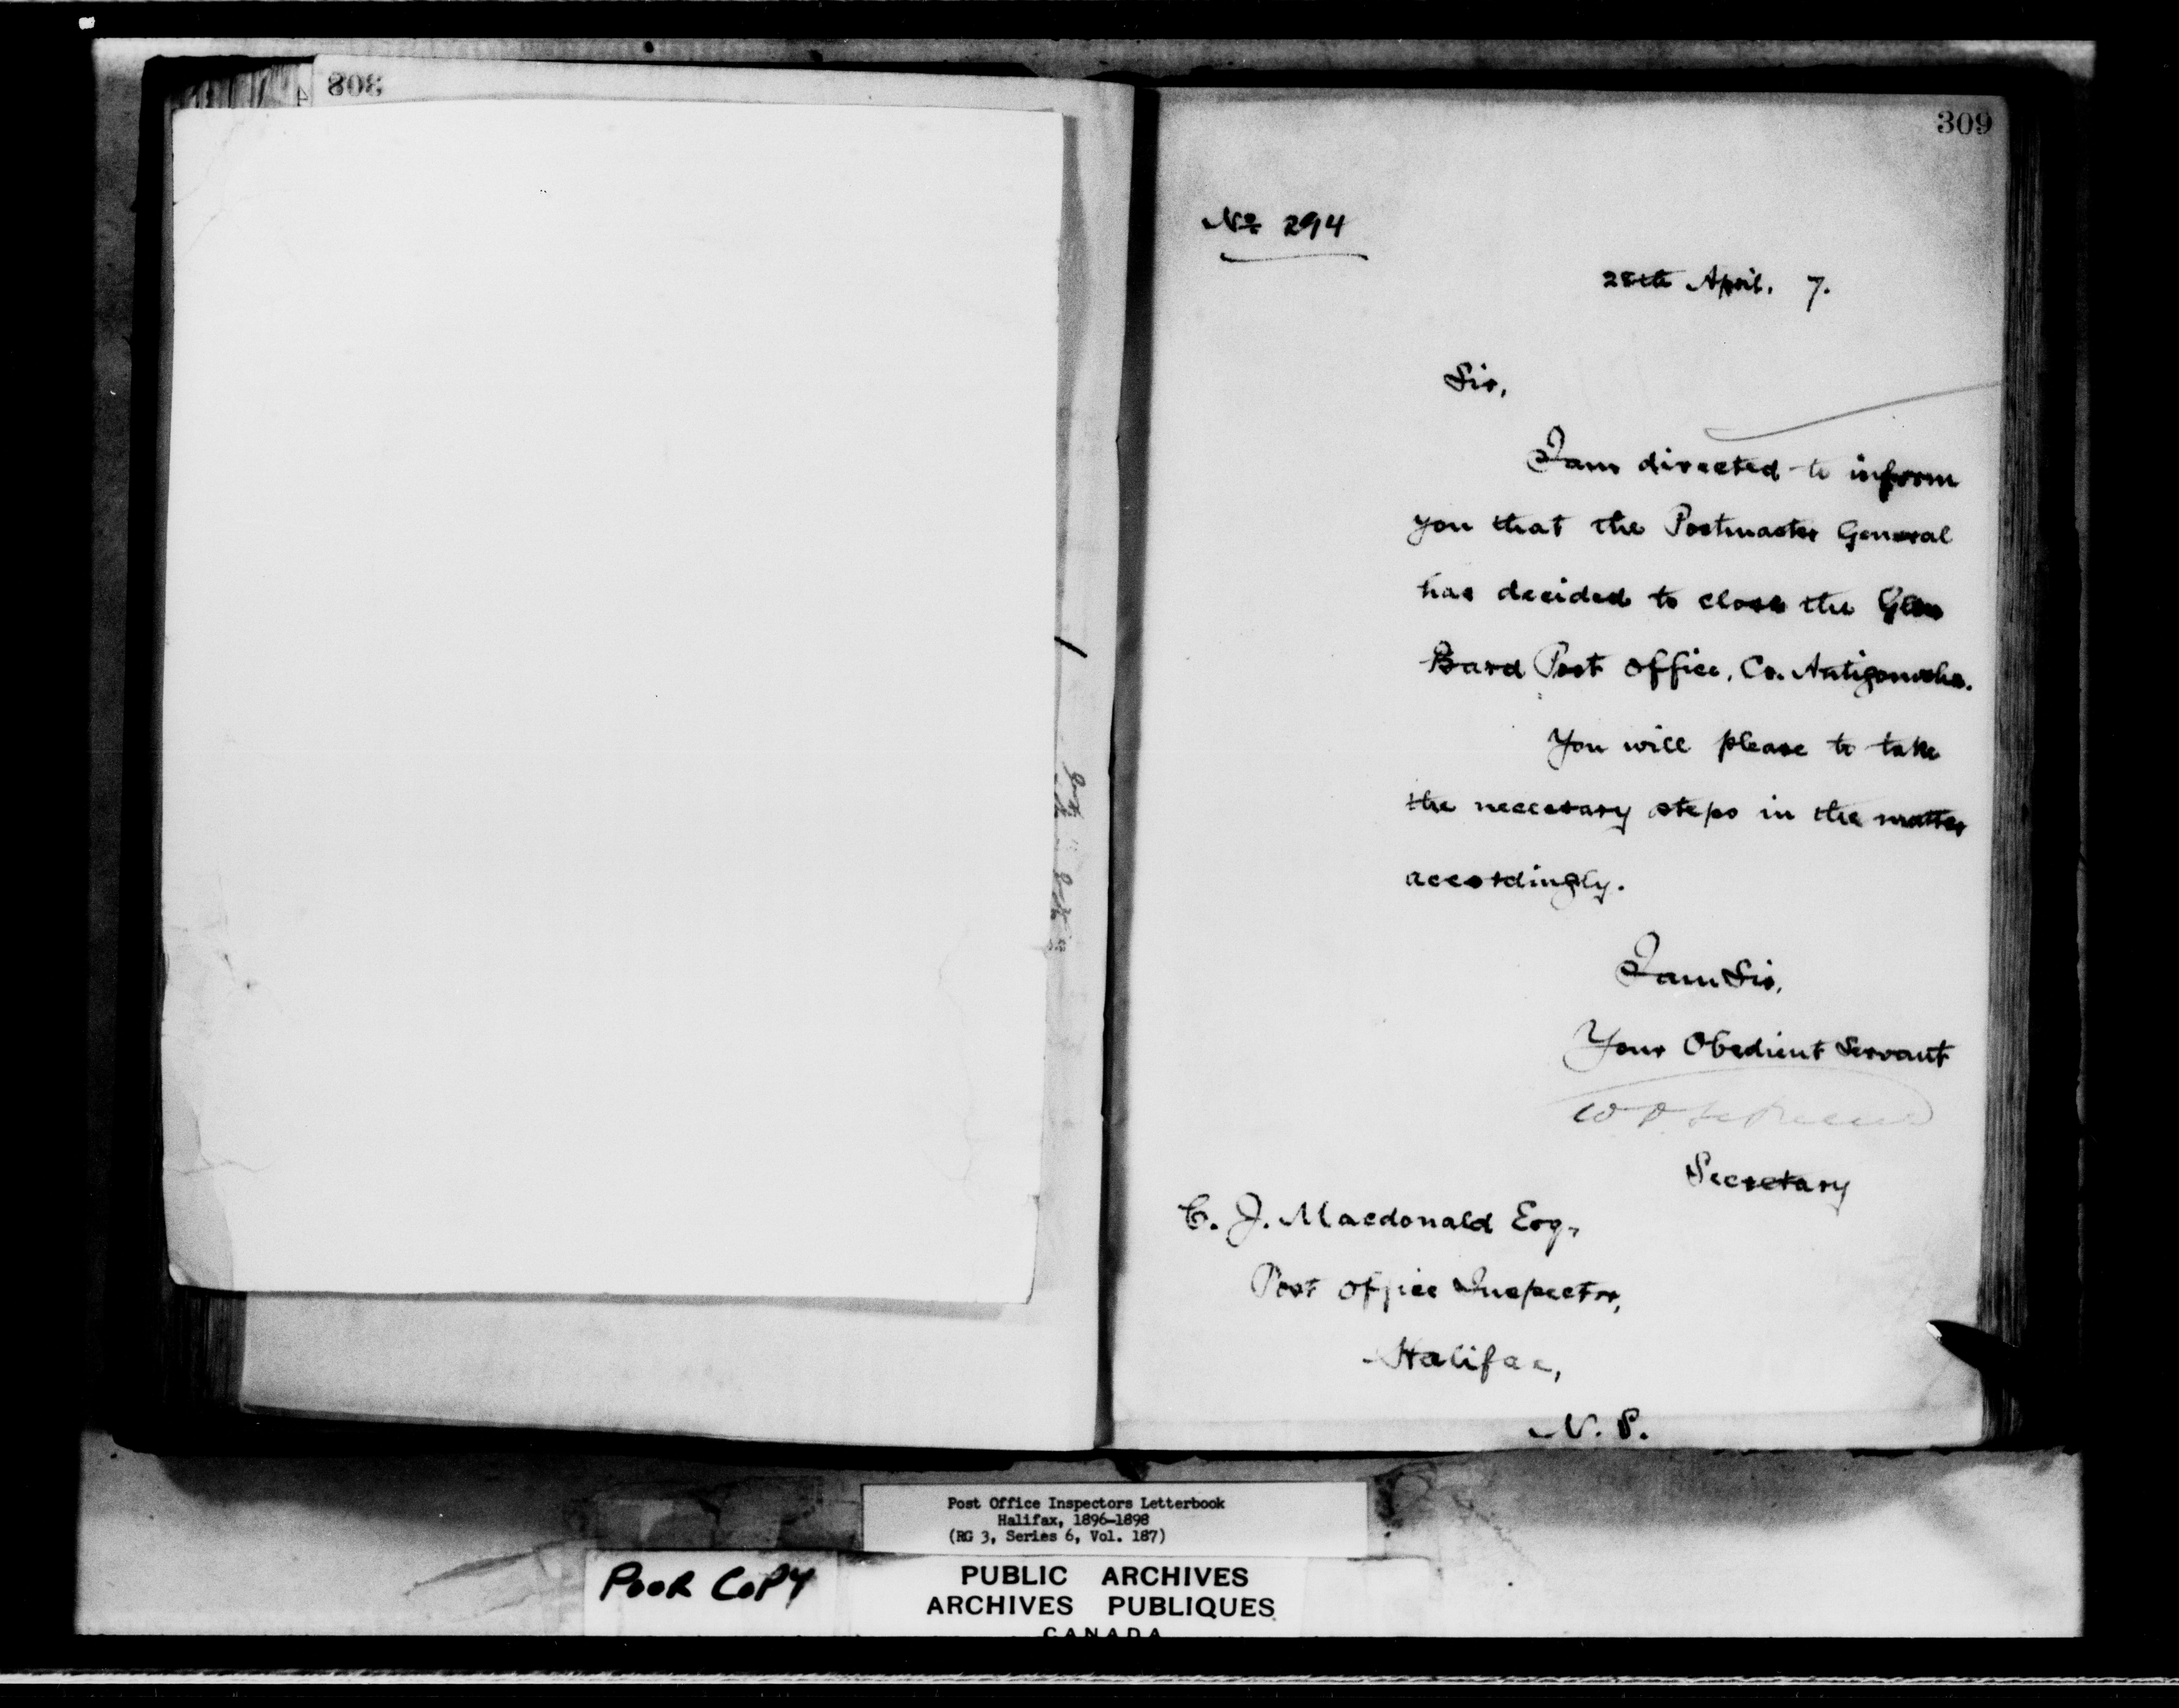 308
309
No 294
28th April. 7.
Sir,
I am directed to inform
you that the Postmaster General
has decided to close the Glen
Bard Post Office, Co. Antigonishe.
You will please to take
the neccesary steps in the matter
accordingly.
I am Sir,
Your Obedient Servant
Secretary
C. J. Macdonald Esq,
Post Office Inspector,
Halifax,
N. S.
Post Office Inspectors Letterbook
Halifax, 1896-1898
(RG 3, Series 6, Vol. 187)
POOR COPY
PUBLIC ARCHIVES
ARCHIVES PUBLIQUES
CANADA